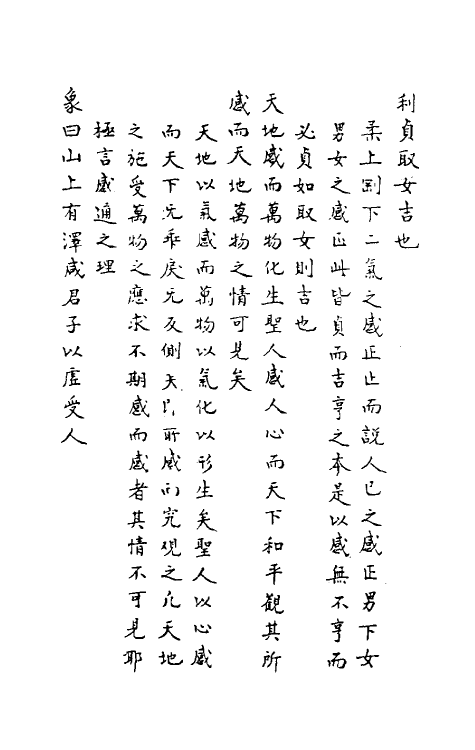 利貞取女吉也
柔上剛下二氣之感正止而說人已之感正男下女
男女之感正此皆貞而吉亨之本是以感無不亨而
必貞如取女則吉也
天地感而萬物化生聖人感人心而天下和平觀其所
感而天地萬物之情可見矣
天地以氣感而萬物以氣化以形生矣聖人以心感
而天下无乖戾无反側矣即所感而究观之凡天地
之施受萬物之應求不期感而感者其情不可見耶
極言感通之理
象曰山上有澤咸君子以虛受人